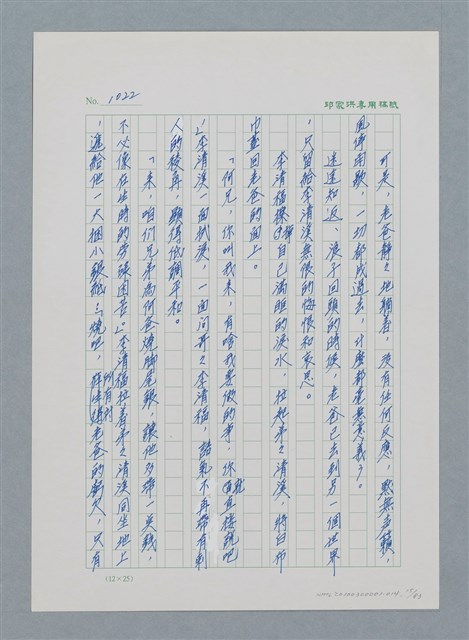 No. 1022
邱家洪專用稿紙
可是，老爸靜々地躺着，沒有任何反應，默無去積，
風停雨歇，一切都成過去，什麼都毫無意義了。
迷途知返、浪子回頭的時候，老爸已去到另一個世界
，只留給李清溪無限的悔恨和哀思。
李清福擦掉自己滿眶的淚水，拉起弟々清溪，將白布
巾蓋回老爸的面上。
「阿兄，你叫我來，有啥我要做的事，你就直接說吧
。」李清溪一面拭淚，一面問哥々李清福，語氣不再帶有刺
人的稜角，顯得低調平和。
「來，咱們兄弟為阿爸燒脚尾銀，讓他多帶一些錢，
不必像在生時的勞碌困苦。」李清福拉着弟々清溪同坐地上
，遞給他一大捆小銀紙：「燒吧，所有對老爸的 人，只有
(12×25)